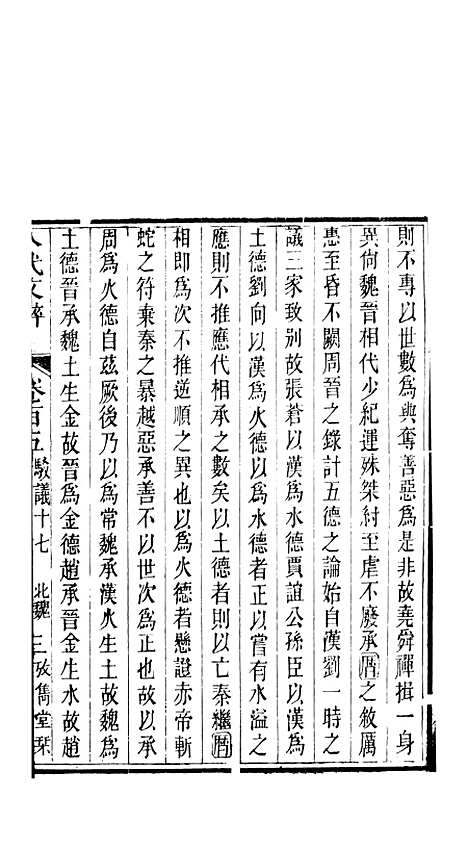 則不專以世數爲與奪善惡爲是非故堯舜禪揖一身
異尙魏晉相代少紀運殊桀紂至虐不廢承厝之敘厲
惠至昏不闕周晉之錄計五德之論始自漢劉一時之
議三家致別故張蒼以漢爲水德賈誼公孫臣以漢爲
土德劉向以漢爲火德以爲水德者正以嘗有水溢之
應則不推應代相承之數矣以土德者則以亡秦繼厝
相即爲次不推逆順之異也以爲火德者懸證赤帝斬
蛇之符棄秦之暴越惡承善不以世次爲正也故以承
周爲火德自茲厥後乃以爲常魏承漢火生土故魏爲
土德晉承魏土生金故晉爲金德趙承晉金生水故趙
八代文粹 卷百五 駮議十七 北魏 三 攷雋堂栞